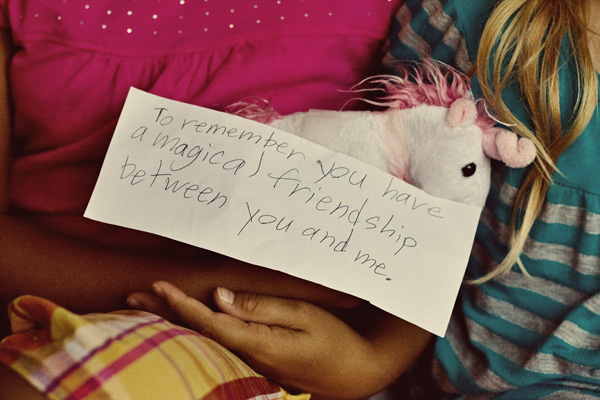 To remember you have
a magical friendship
between you and me.